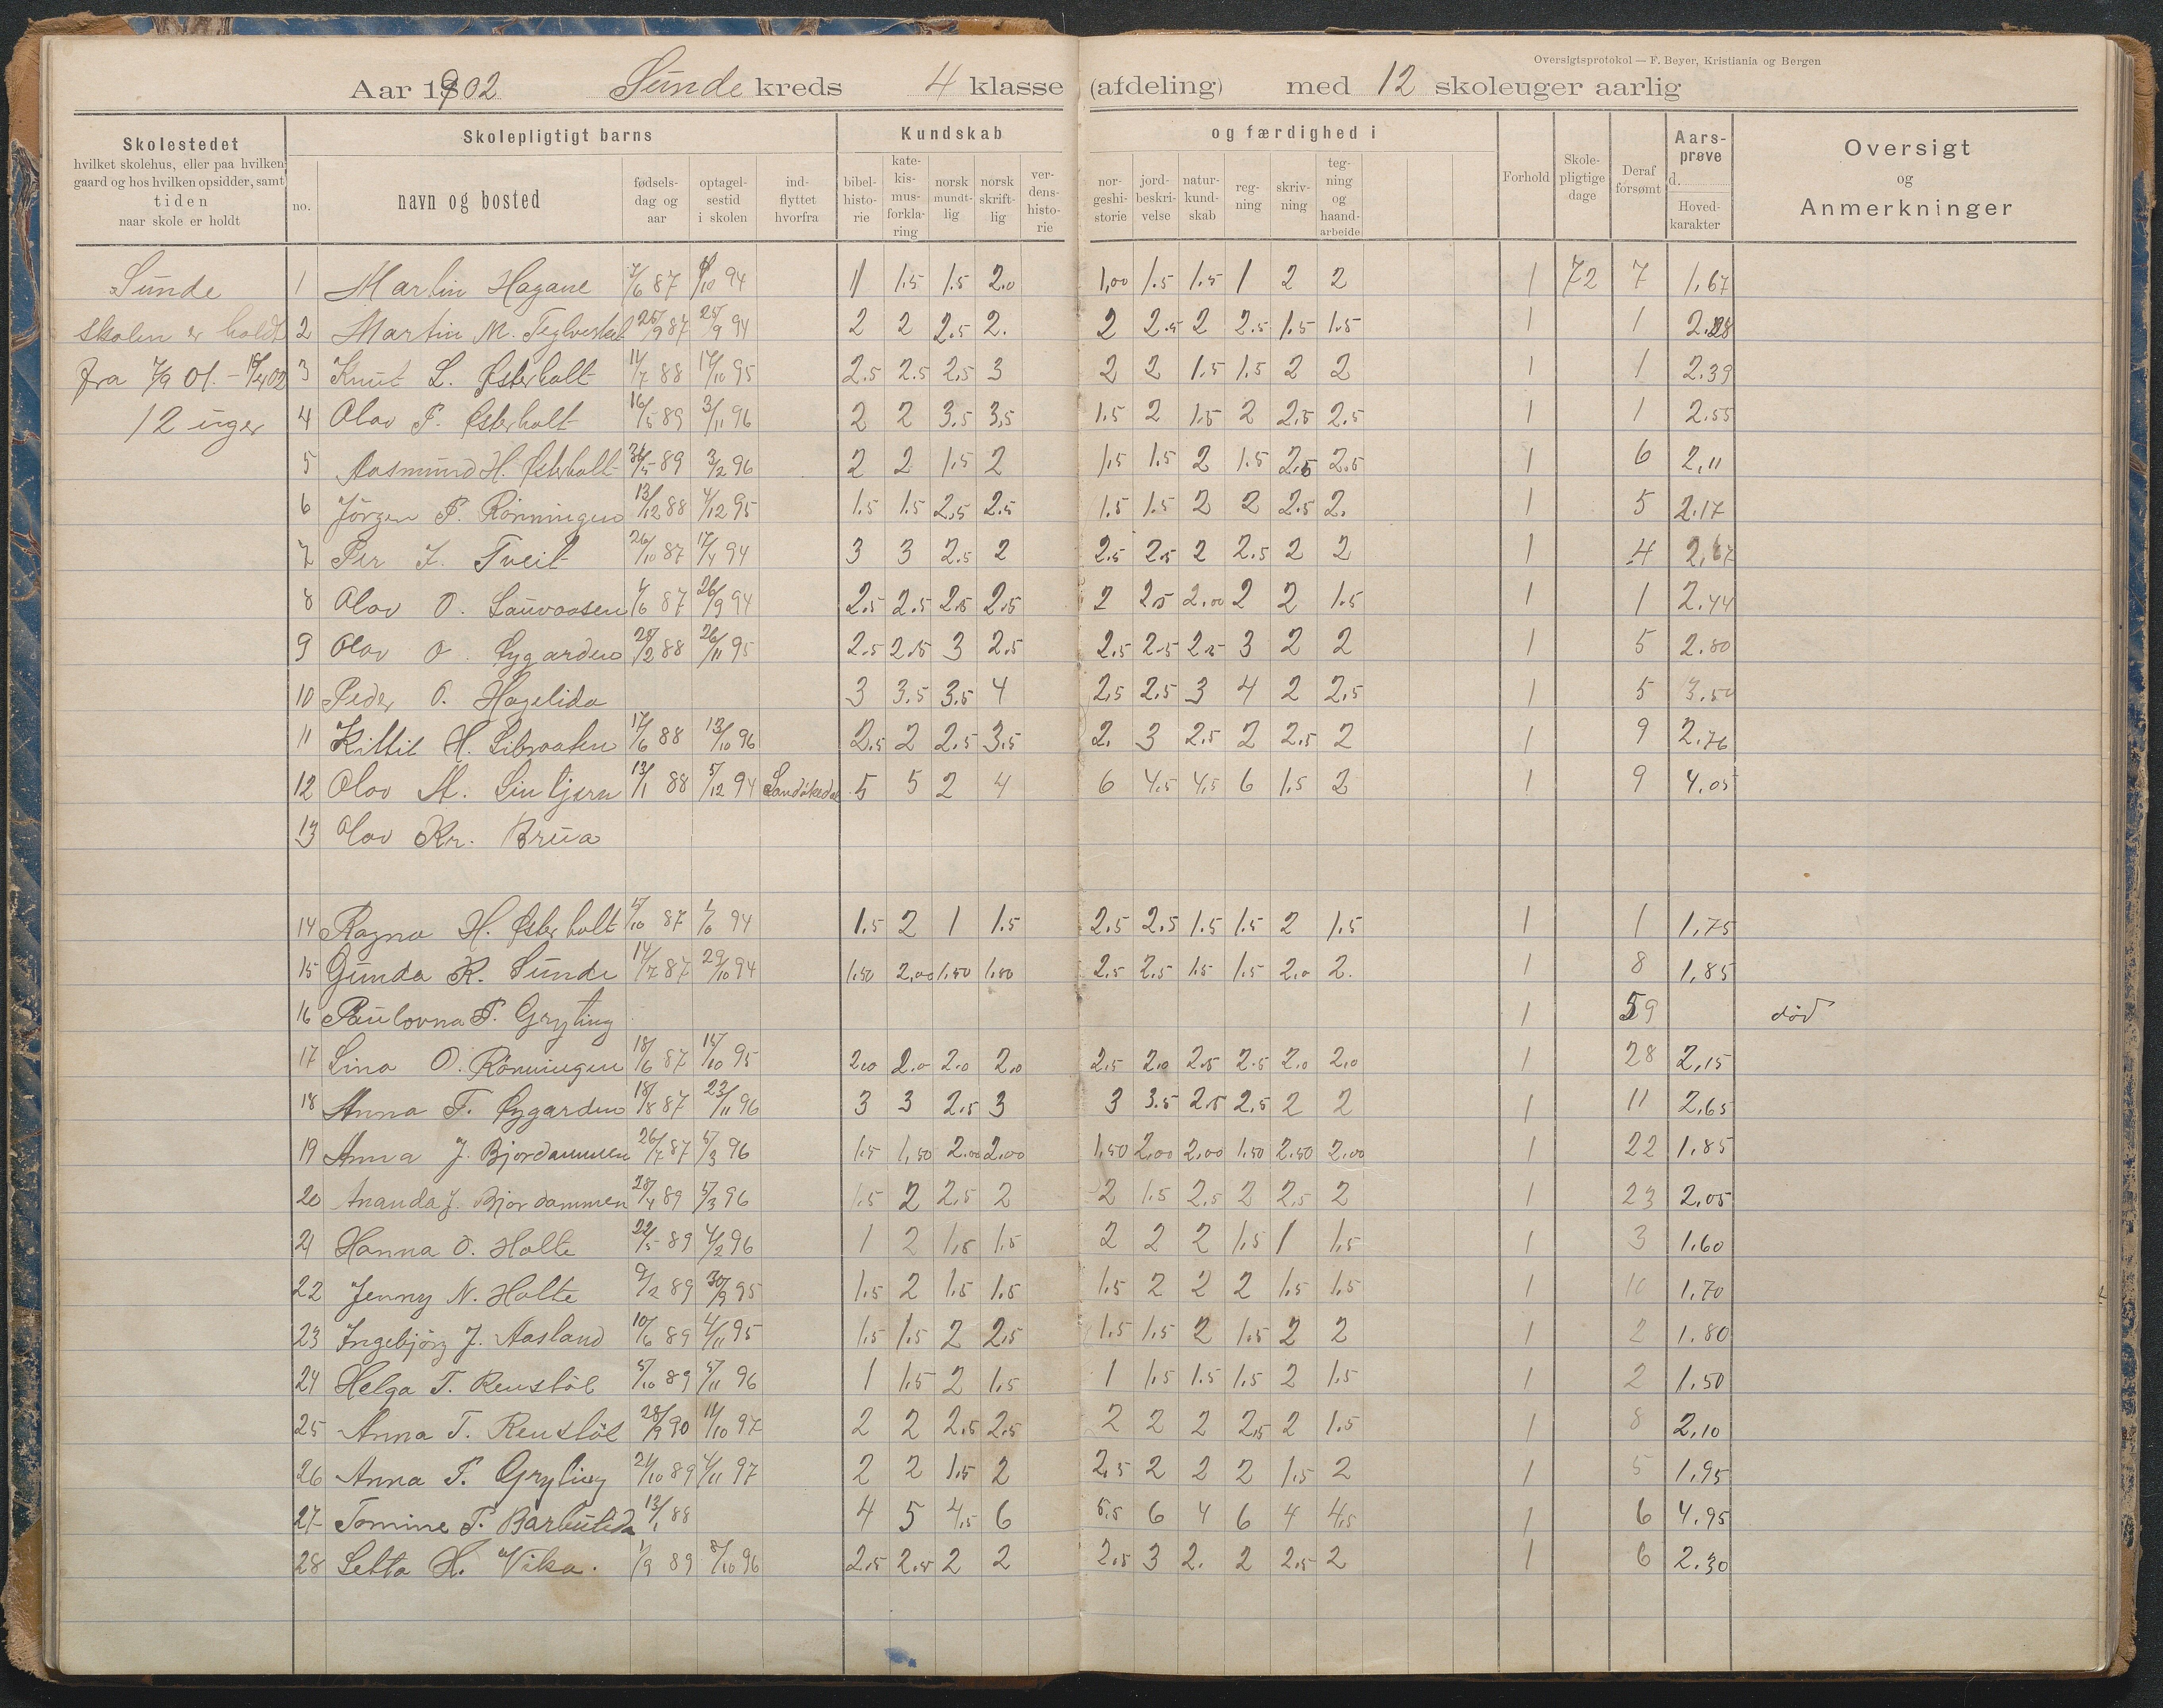 Oversigtsprotokol — F. Beyer, Kristiania og Bergen
Aar 1902 Sunde kreds 4 klasse (afdeling) med 12 skoleuger aarlig
Skolestedet hvilket skolehus, eller paa hvilken gaard og hos hvilken opsidder, samt tiden naar skole er holdt
Skolepligtigt barns
no. navn og bosted fødsels-dag og aar optagel-sestid i skolen ind-flyttet hvorfra
Kundskab og færdighed i
bibel-histo-rie kate-kis-mus-forkla-ring norsk mundt-lig norsk skrift-lig ver-dens-histo-rie nor-geshi-storie jord-beskri-velse natur-kund-skab reg-ning skriv-ning teg-ning og haand-arbeide
Forhold Skole-pligtige dage Deraf forsømt Aars-prøve d. Hoved-karakter
Oversigt og Anmerkninger
Sunde
skolen er holdt
fra 7/9 01. - 15/4 02
12 uger
1 Martin Hagane 7/6 87 /10 94 1 1.5 1.5 2.0 1,00 1.5 1.5 1 2 2 1 72 7 1,67
2 Martin M. 25/9 87 25/9 94 2 2 2.5 2. 2 2.5 2 2.5 1.5 1.5 1 1 2.28
3 Knut L. Østerholt 14/7 88 17/10 95 2.5 2.5 2.5 3 2 2 1.5 1.5 2 2 1 1 2.39
4 Olav P. Østerholt 16/5 89 3/11 96 2 2 3.5 3.5 1.5 2 1.5 2 2.5 2.5 1 1 2.55
5 Aasmund H. Østerholt 31/5 89 3/2 96 2 2 1.5 2 1.5 1.5 2 1.5 2.5 2.5 1 6 2,11
6 Jörgen P. Rönningen 13/12 88 4/12 95 1.5 1.5 2.5 2.5 1.5 1.5 2 2 2.5 2. 1 5 2.17
7 Per J. Tveit 26/10 87 17/4 94 3 3 2.5 2 2.5 2.5 2 2.5 2 2 1 4 2,67
8 Olav O. Sauvaasen /6 87 26/9 94 2.5 2.5 2.5 2.5 2 2.5 2.00 2 2 1.5 1 1 2.44
9 Olav O. Øygarden 25/2 88 26/11 95 2.5 2.5 3 2.5 2.5 2.5 2.5 3 2 2 1 5 2.80
10 Peder O. Hagelida 3 3.5 3.5 4 2.5 2.5 3 4 2 2.5 1 5 3.50
11 Kittil H. Libraaten 17/6 88 13/10 96 2.5 2 2.5 3.5 2. 3 2.5 2 2.5 2 1 9 2.76
12 Olav M. Lintjern 13/1 88 5/12 94 Sandökedal 5 5 2 4 6 4.5 4.5 6 1.5 2 1 9 4.05
13 Olav Kr. Brua
14 Ragna H. Østerholt 15/10 87 94 1.5 2 1 1.5 2.5 2.5 1.5 1.5 2 1.5 1 1 1,75
15 Gunda K. Sunde 14/7 87 29/10 94 1.50 2,00 1.50 1.50 2.5 2.5 1.5 1.5 2.0 2. 1 8 1,85
16 Paulovna T. Gryting 1 59 död
17 Lina O. Rönningen 18/6 87 15/10 95 2.0 2.0 2.0 2.0 2.5 2.0 2.5 2.5 2.0 2.0 1 28 2,15
18 Anna T. Øygarden 18/8 87 23/11 96 3 3 2.5 3 3 3.5 2.5 2.5 2 2 1 11 2,65
19 Anna J. Bjordammen 26/7 87 5/3 96 1.5 1,50 2.00 2.00 1,50 2,00 2,00 1,50 2.50 2.00 1 22 1.85
20 Ananda J. Bjordammen 28/4 89 5/3 96 1.5 2 2.5 2 2 1.5 2.5 2 2,5 2 1 23 2,05
21 Hanna O. Holte 22/5 89 4/2 96 1 2 1.5 1.5 2 2 2 1.5 1 1.5 1 3 1,60
22 Jenny N. Holte 9/2 89 30/9 95 1.5 2 1.5 1.5 1.5 2 2 2 1.5 1.5 1 10 1,70
23 Ingebjörg J. Aasland 10/6 89 4/11 95 1.5 1.5 2 2.5 1.5 1.5 2 1.5 2 2 1 2 1.80
24 Helga T. Renstöl 5/10 89 5/11 96 1 1.5 2 1.5 1 1.5 1.5 1.5 2 1.5 1 2 1.50
25 Anna T. Renstöl 28/9 90 11/10 97 2 2 2.5 2.5 2 2 2 2.5 2 1.5 1 8 2,10
26 Anna P. Gryting 24/10 89 4/11 97 2 2 1.5 2 2.5 2 2 2 1.5 2 1 5 1.95
27 Tomine T. Barlulida 13/1 88 4 5 4.5 6 5.5 6 4 6 4 4.5 1 6 4.95
28 Setta H. Vika. 1/9 89 8/10 96 2.5 2.5 2 2 2.5 3 2. 2 2.5 2 1 6 2.30